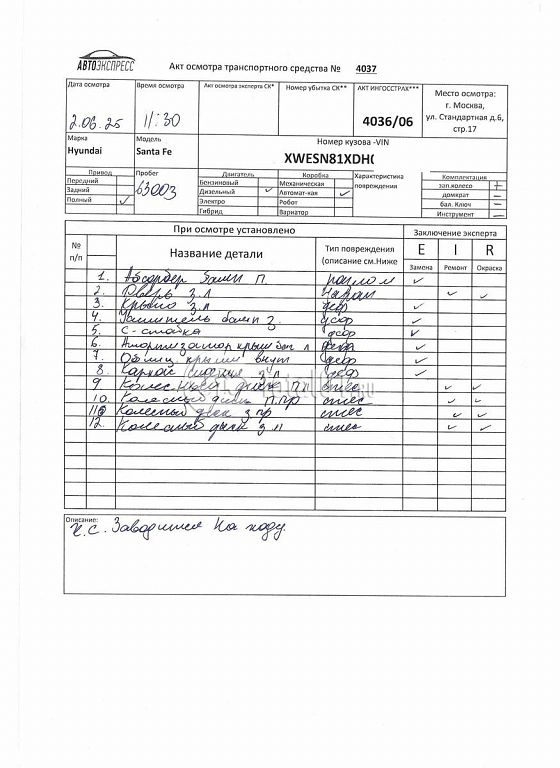 АВТОЭКСПРЕСС
Акт осмотра транспортного средства № 4037
Дата осмотра
Время осмотра
Акт осмотра эксперта СК*
Номер убытка СК**
АКТ ИНГОССТРАХ***
Место осмотра:
г. Москва,
ул. Стандартная д.6,
стр.17
2.06.25
11:30
4036/06
Марка
Модель
Номер кузова -VIN
Hyundai
Santa Fe
XWESN81XDH
Привод
Пробег
Двигатель
Коробка
Характеристика
повреждения
Комплектация
Передний
63003
Бензиновый
Механическая
зап.колесо +
Задний
Дизельный ✓
Автомат-кая ✓
домкрат –
Полный ✓
Электро
Робот
бал. Ключ –
Гибрид
Вариатор
Инструмент –
При осмотре установлено
Заключение эксперта
№
п/п
Название детали
Тип повреждения
(описание см.Ниже
E I R
Замена Ремонт Окраска
1. Абсорбер бамп П. разлом ✓
2. Дверь З.Л ✓ ✓
3. Крыло З.Л деф ✓
4. Усилитель бамп З. деф ✓
5. С-стойка деф ✓
6. Амортизатор крыш баг л деф ✓
7. Облиц. крыши внут деф ✓
8. Каркас З.Л деф ✓
9. диск П.Л ✓ ✓
10. Колесный диск П.ПР ✓ ✓
11 Колесный диск З ПР ✓ ✓
12. Колесный диск З Л ✓ ✓
Описание:
Заводится На ходу